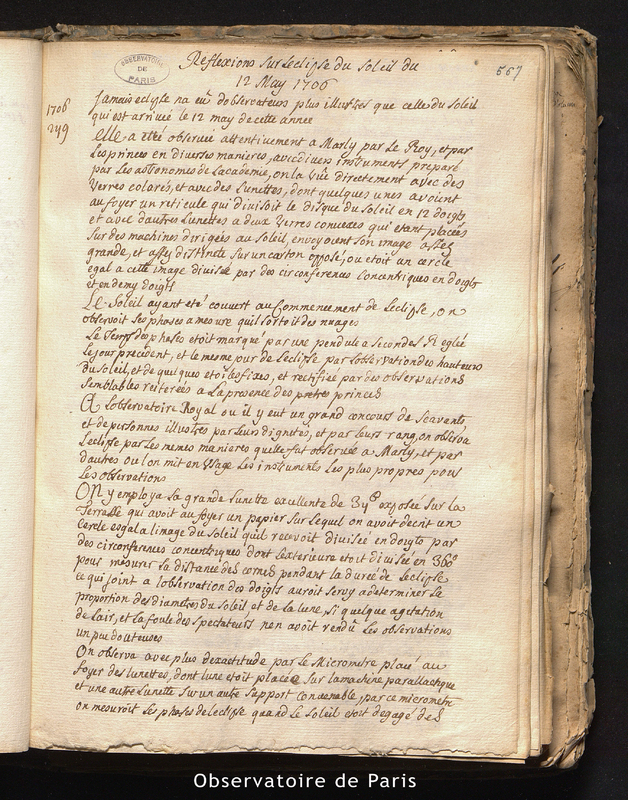 Reflexions sur Leclipse du Soleil du
12 May 1706
567
OBSERVATOIRE
DE
PARIS
1706
249
Jamais eclipse na eu dobservateurs plus illustres que celle du Soleil
qui est arrivée le 12 may de cette année
elle a esté observée attentivement a Marly par Le Roy, et par
Les princes en diverses manieres, avec divers instruments preparé
par Les astronomes de Lacademie, on La vüe directement avec des
Verres colorés, et avec des Lunettes, dont quelques unes avoient
au foyer un reticule qui divisoit le disque du Soleil en 12 doigts
et avec dautres Lunettes a deux Verres convexes qui etant placées
sur des machines dirigées au Soleil, envoyoient son image assez
grande, et assez distincte sur un carton opposé, ou etoit un cercle
egal a cette image divisée par des circonferences concentriques en doigts
et en demy doigts
Le Soleil ayant eté couvert au Commencement de Leclipse, on
observoit ses phases a mesure quil sortoit des nuages
Le Temps des phases etoit marqué par une pendule a Secondes Reglée
Le jour precedent, et le mesme jour de Leclipse par Lobservation des hauteurs
du Soleil, et de quelques etoiles fixes, et rectifiée par des observations
Semblables reiterées a La presence des princes
A Lobservatoire Royal ou il y eut un grand concours de Scavents,
et de personnes illustres par Leurs dignités, et par Leurs rang, on observa
Leclipse par Les memes manieres quelle fut observée a Marly, et par
dautres ou Lon mit en Usage Les instruments Les plus propres pour
Les observations
On y employa La grande Lunette excellente de 34 exposée sur La
Terrasse qui avoit au foyer un papier sur Lequel on avoit decrit un
Cercle esgal a Limage du Soleil quil recevoit divisée en doigts par
des circonferences concentriques dont Lexterieure etoit divisée en 360°
pour mesurer La distance des cornes pendant la durée de Leclipse
ce qui joint a Lobservation des doigts auroit servy a determiner La
proportion des diametres du Soleil et de La Lune, si quelque agetation
de Lair, et La foule des spectateurs nen avoit rendu Les observations
un peu douteuses
On observa avec plus dexactitude par Le Micrometre placé au
foyer des Lunettes, dont Lune etoit placée sur La machine parallactique
et une autre Lunette sur un autre support convenable, par ce micrometre
on mesuroit Les phases de Leclipse quand Le Soleil etoit degagé des
Observatoire de Paris